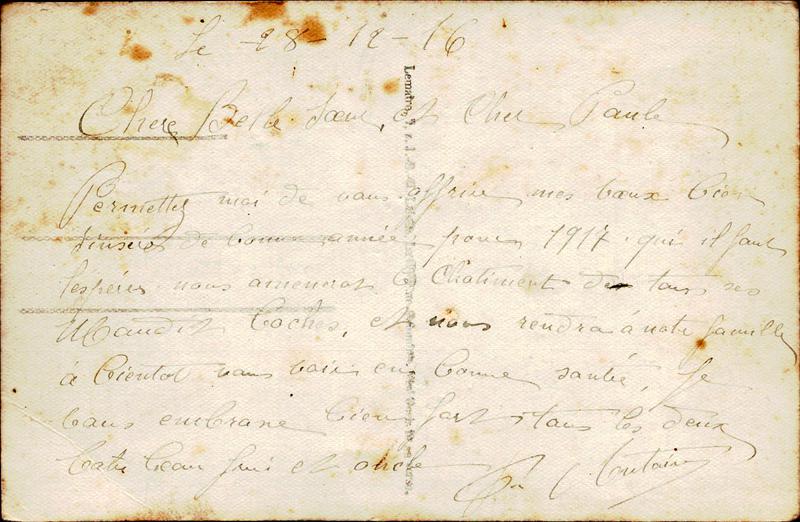 le 28-12-16
Chere Belle Sœur, et Cher Paule
Permettez moi de vous offrire mes vœux bien
sinséres de bonne année pour 1917 qui il faut
l'espérer nous amenerat le Chatiment de tous ses
Maudit boches, et nous rendra à notre famille
à bientot vous voir en bonne santée, Je
vous embrasse bien fort tous les deux
votre beau frere et oncle
Lemaire